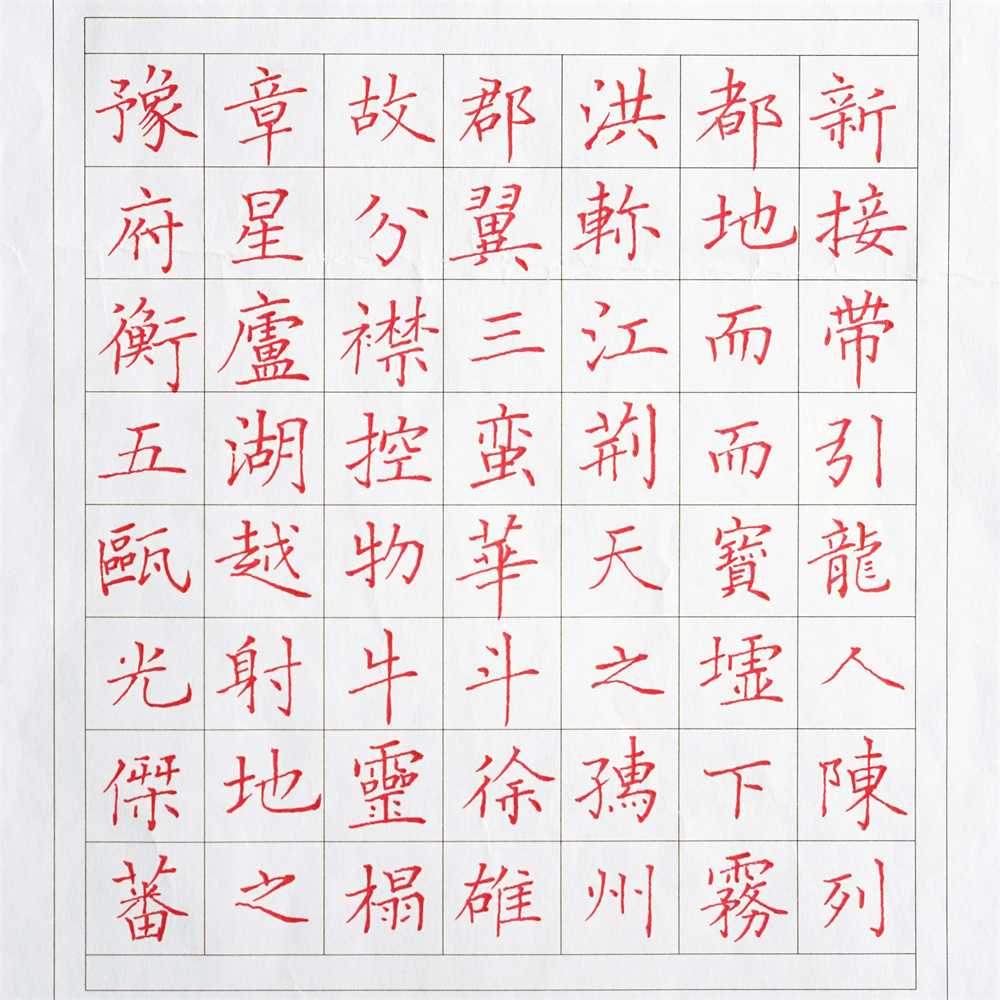 豫章故郡洪都新
府星分翼軫地接
衡廬襟三江而帶
五湖控蛮荆而引
甌越物華天寶龍
光射牛斗之墟人
傑地靈徐孺下陳
蕃之榻雄州霧列